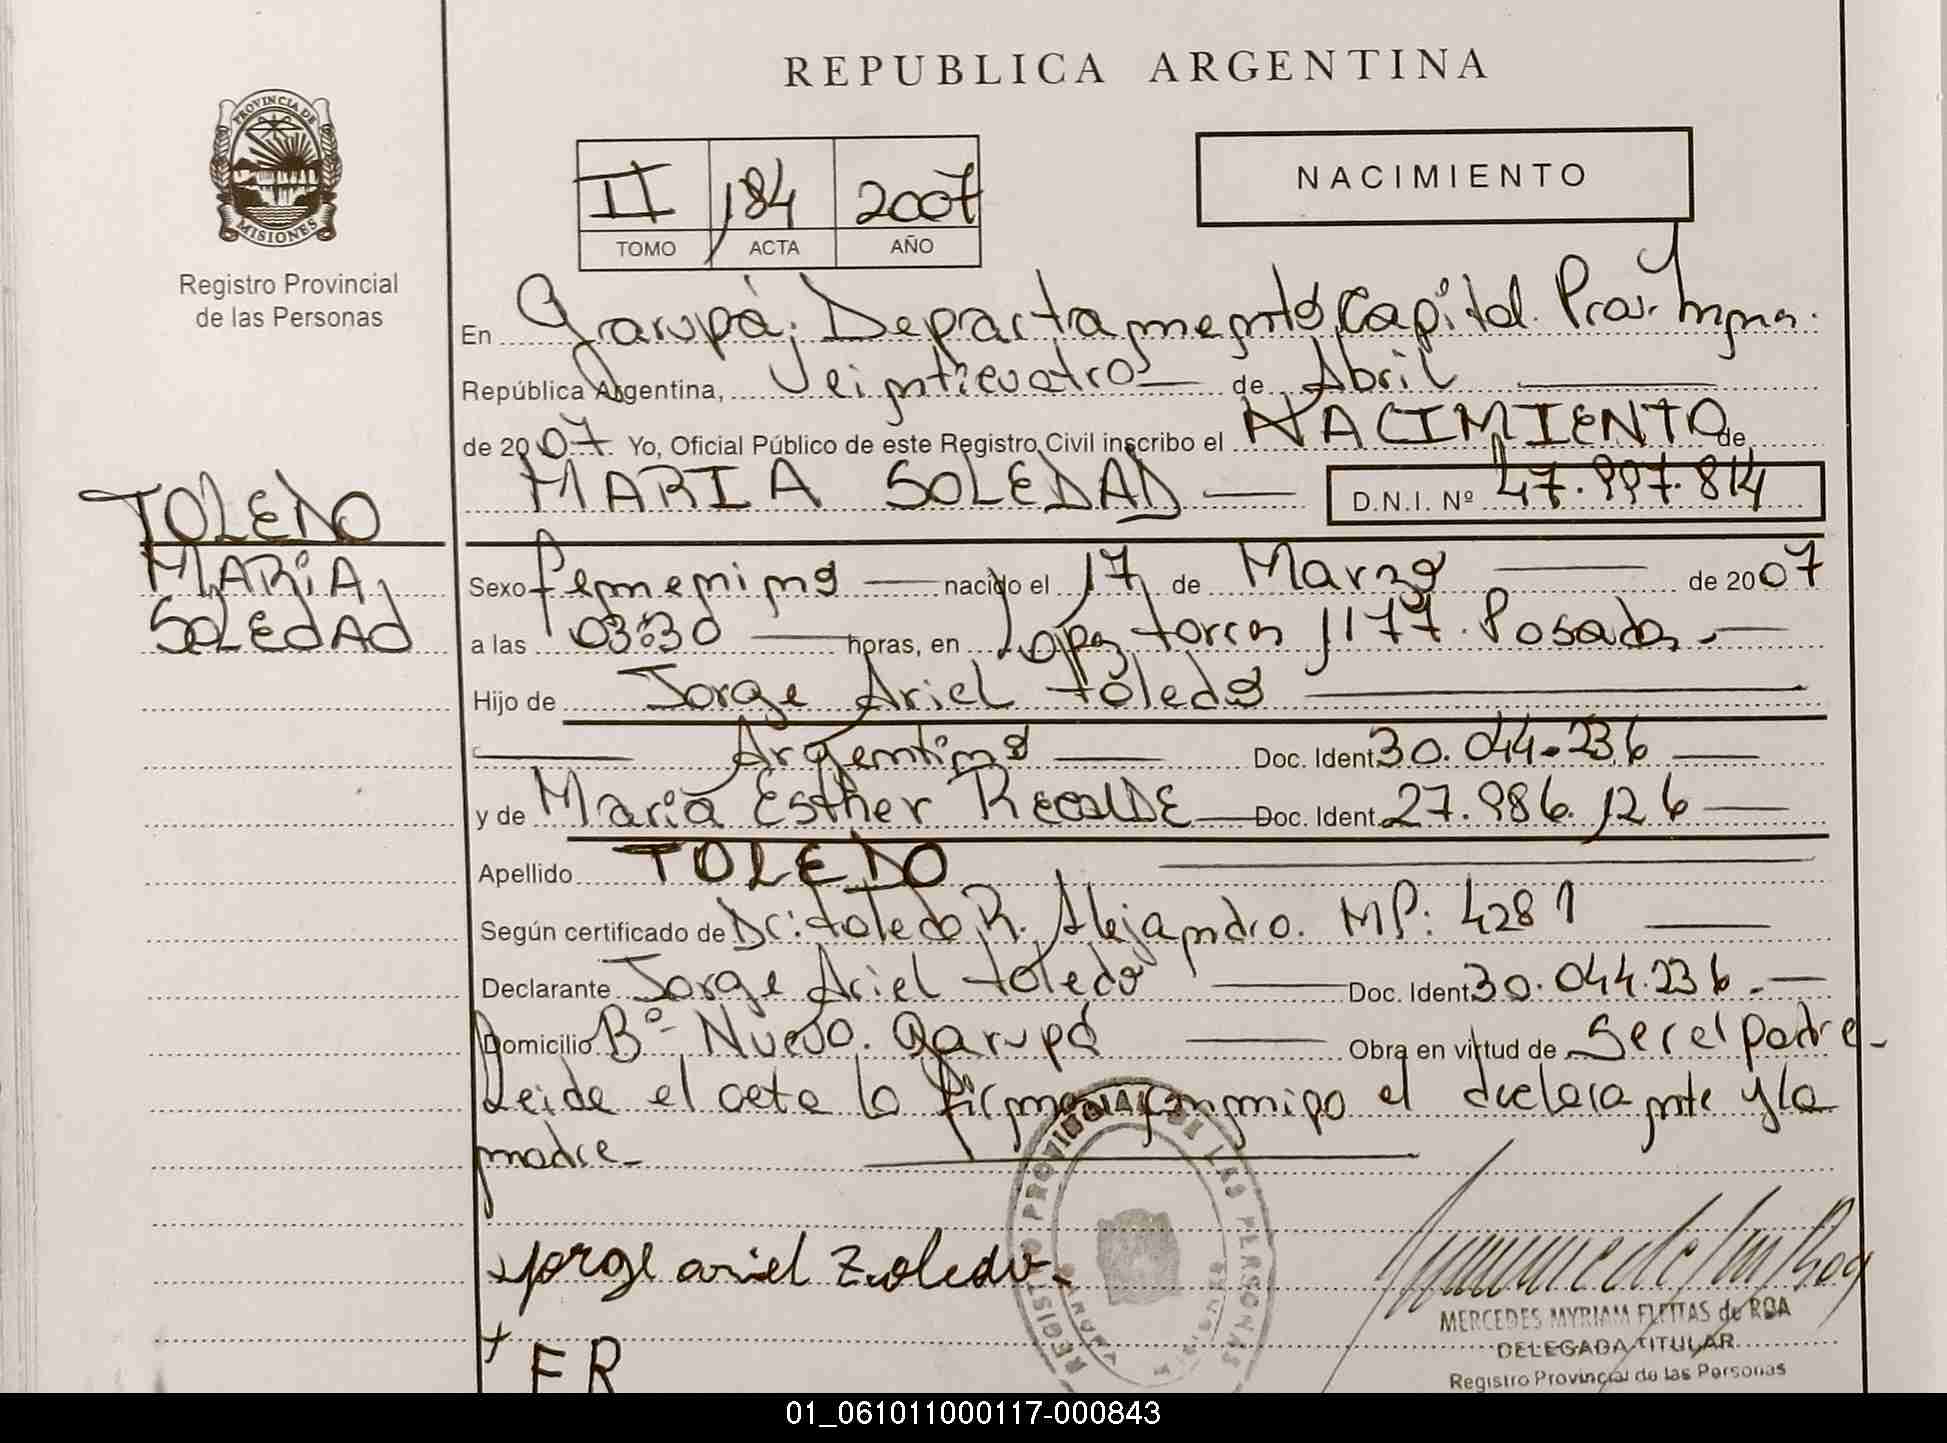 REPUBLICA ARGENTINA
PROVINCIA DE
MISIONES
Registro Provincial
de las Personas
II 184 2007
TOMO ACTA AÑO
NACIMIENTO
En Garupá, Departamento Capital Prov. Mnes.
República Argentina, Veinticuatro de Abril
de 2007 Yo, Oficial Público de este Registro Civil inscribo el NACIMIENTO de
MARIA SOLEDAD D.N.I. Nº 47.997.814
TOLEDO
MARIA
SOLEDAD
Sexo femenino nacido el 17 de Marzo de 2007
a las 03:30 horas, en Lopez torres 1177. Posadas
Hijo de Jorge Ariel toledo
Argentino Doc. Ident. 30.044.236
y de Maria Esther RecalDE Doc. Ident. 27.986.126
Apellido TOLEDO
Según certificado de Dr: toledo, R. Alejandro. MP: 4281
Declarante Jorge Ariel toledo Doc. Ident. 30.044.236.
Domicilio Bº Nuevo. Garupá Obra en virtud de Ser el padre
Leida el acta la firma conmigo el declarante y la
madre
Jorge ariel Toledo
+ ER
REGISTRO PROVINCIAL DE LAS PERSONAS
MERCEDES MYRIAM FLEITAS de ROA
DELEGADA TITULAR
Registro Provincial de las Personas
01_061011000117-000843